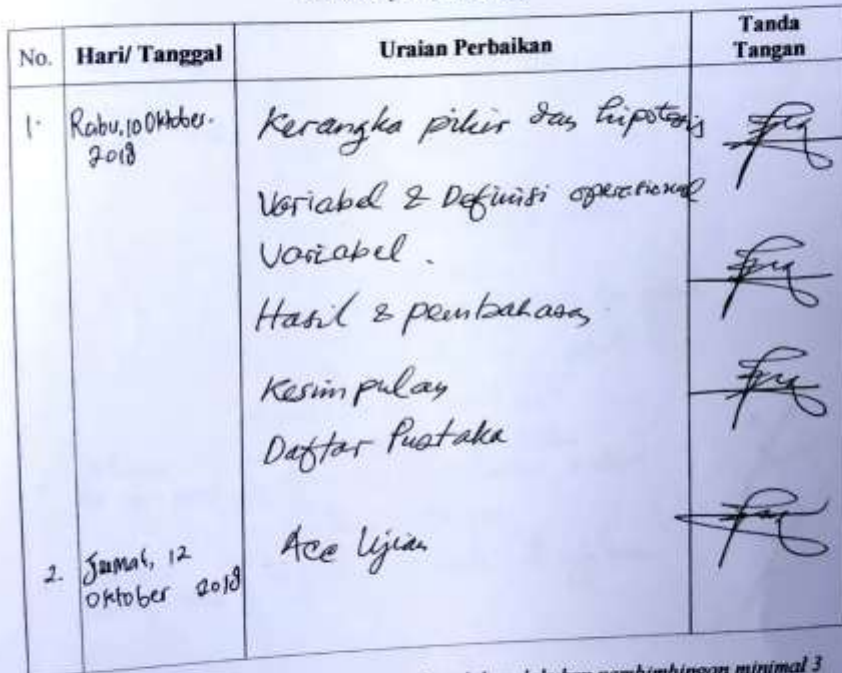 No. Hari/ Tanggal Uraian Perbaikan Tanda Tangan
1. Rabu, 10 Oktober. 2018 Kerangka pikir dan hipotesis
Variabel & Definisi operasional
Variabel.
Hasil & pembahasan
Kesimpulan
Daftar Pustaka
2. Jumat, 12 Oktober 2018 Acc Ujian
pembimbingan minimal 3